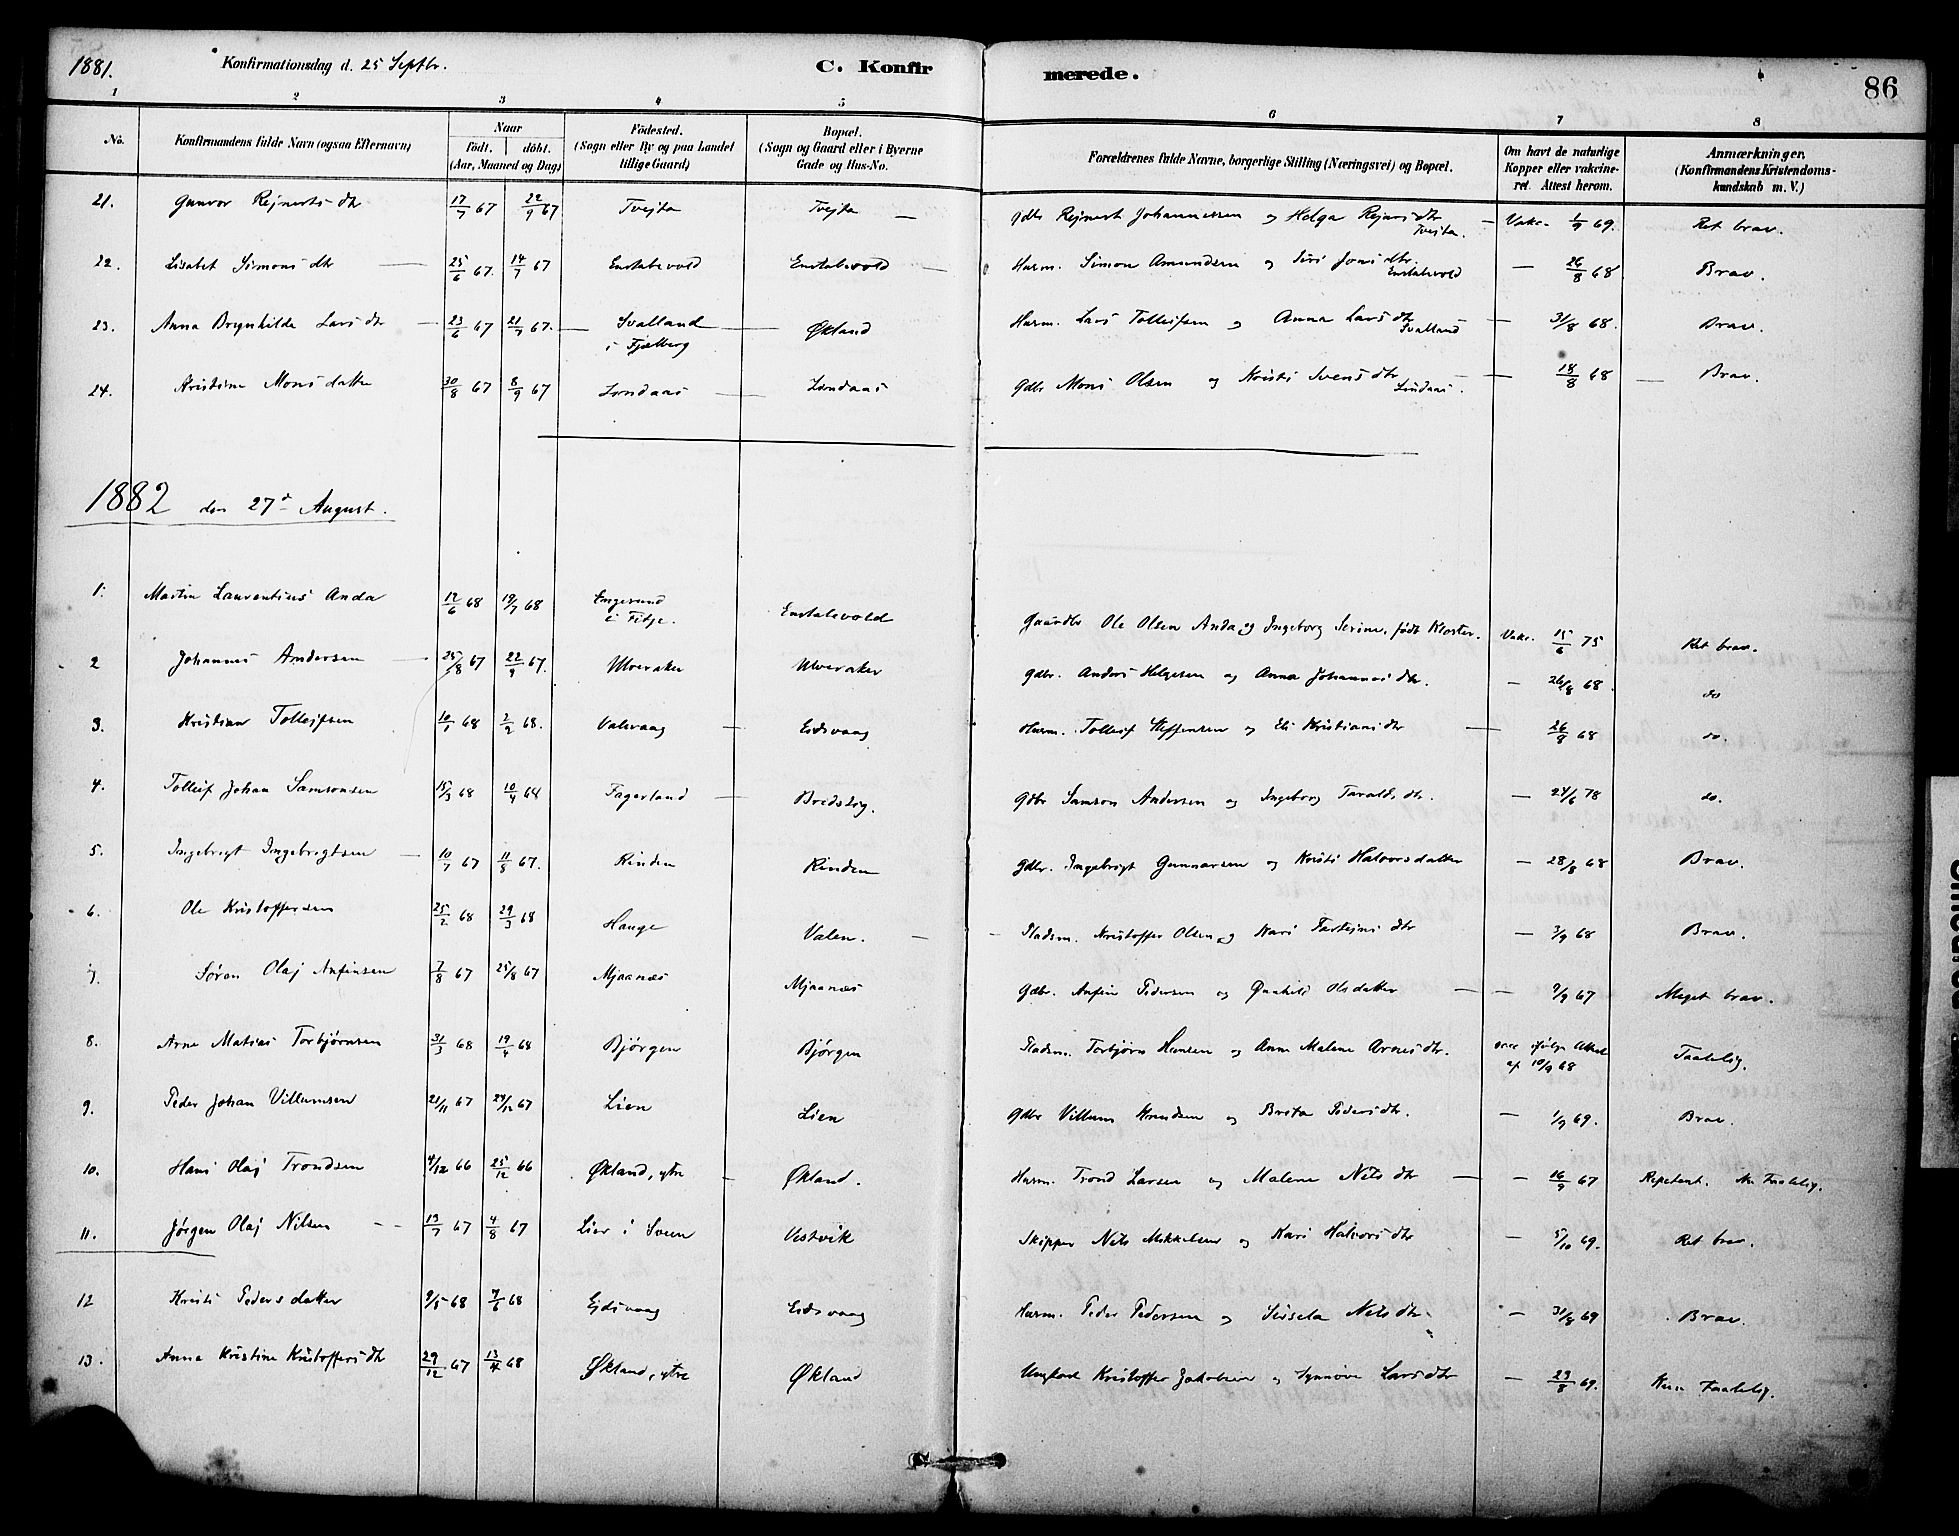 1881. Konfirmationsdag d. 25 Septbr. C. Konfirmerede. 86
1 2 3 4 5 6 7 8
No. Konfirmandens fulde Navn (ogsaa Efternavn) Naar födt. döbt. (Aar, Maaned og Dag) Födested. (Sogn eller By og paa Landet tillige Gaard) Bopæl. (Sogn og Gaard eller i Byerne Gade og Hus-No. Forældrenes fulde Navne, borgerlige Stilling (Næringsvei) og Bopæl. Om havt de naturlige Kopper eller vakcineret. Attest herom. Anmærkninger. (Konfirmandens Kristendomskundskab m. V.)
21. Gunvor Rejnertsdtr 17/7 67 22/9 67 Tvejta Tvejta — Gdbr Rejnert Johannessen og Helga Rejersdtr Tvejta. — Vakc. 1/9 69. Ret brav.
22. Lisabet Simonsdtr — 25/6 67. 14/7 67 Enstabvold Enstabvold — Husm. Simon Amundsen og Siri Jonsdtr. Enstabvold — 26/8 68 Brav.
23. Anna Brynhilde Larsdtr — 23/6 67 21/7 67. — Svalland i Fjelberg — Økland Husm. Lars Tolleifsen og Anna Larsdtr Svalland — 31/8 68. Brav.
24. Kristine Monsdatter 30/8 67 8/9 67 Løndaas — Løndaas Gdbr Mons Olsen og Kristi Svensdtr Løndaas. — 18/8 68 — Brav.
1882 den 27d August.
1. Martin Laurentius Anda 12/6 68 19/7 68 Engesund i Fitje. Enstabvold Gaardbr Ole Olsen Anda og Ingeborg Serine, født Kloster. Vakc. 15/6 75 Ret brav.
2 Johannes Andersen — 25/8 67 22/9 67. Ulveraker Ulveraker Gdbr. Anders Helgesen og Anna Johannesdtr. — 26/8 68. do
3. Kristian Tolleifsen 10/7 68 2/9 68. Valevaag — Eidsvaag Husm. Tolleif Steffensen og Eli Kristiansdtr — 26/9 68 do.
4. Tolleif Johan Samsonsen 15/3 68 10/4 68 Fagerland — Bredstog. Gdbr Samson Andersen og Ingeborg Taraldsdtr. — 24/6 78 do.
5. Ingebrigt Ingebrigtsen — 10/7 67 11/8 67. Rinden Rinden Gdbr. Ingebrigt Gunnarsen og Kristi Halvorsdatter — 28/8 68 Brav.
6. Ole Kristoffersen 25/2 68 29/3 68 Hauge Valen. — Pladsm. Kristoffer Olsen og Kari Torkjelsdtr — 3/9 68 Brav.
7. Søren Olaj Anfinsen 7/8 67 25/8 67 Mjaanæs Mjaanæs Gdbr. Anfin Pedersen og Olsdatter — 9/9 67 Meget brav.
8. Arne Matias Torbjørnsen 31/3 68 19/4 68 Bjørgen Bjørgen Pladsm. Torbjørn Hansen og Anna Malene Arnesdtr. vacc ifølge Attest af 10/9 68 Taalelig.
9. Peder Johan Villumsen 21/11 67 24/12 67 Lien Lien Gdbr Villum Knudsen og Brita Pedersdtr. — 1/9 69. Brav.
10. Hans Olaj Trondsen 4/12 66 25/12 66 Økland, ytre — Økland. Husm. Trond Larsen og Malene Nilsdtr — 16/9 67 Repetent. Nu Taalelig.
11. Jørgen Olaj Nilsen — 13/7 67 4/8 67 Lier i Sveen Vestvik Skipper Nils Mikkelsen og Kari Halvorsdtr — 5/10 69. Ret brav.
12 Kristi Pedersdatter 9/5 68 7/6 68 Ejdsvaag Eidsvaag Husm. Peder Pedersen og Sissela Nilsdtr. — 31/8 69 Brav.
13. Anna Kristine Kristoffersdtr 29/12 67 13/4 68 Økland, ytre Økland Ungkarl Kristoffer Jakobsen og Synnøve Larsdtr — 29/8 69. Kun Taalelig.